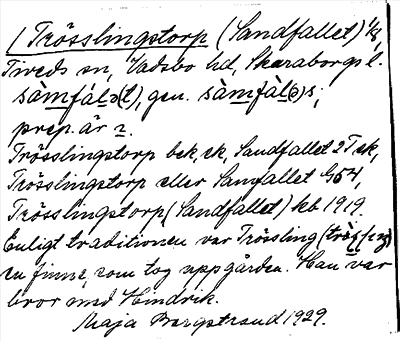 Trösslingstorp (Sandfallet) 1/8,
Tiveds sn, Vadsbo hd, Skaraborgs l.
sàmfálə(t), gen. sàmfàl(ə)s;
prep. är i.
Trösslingstorp bek. ek, Sandfallet 2T ek,
Trösslingstorp eller Samfallet G54,
Trösslingstorp (Sandfallet) kb 1919.
Enligt traditionen var Trössling
en finne, som tog upp gården. Han var
bror med Hindrik.
Maja Bergstrand 1929.